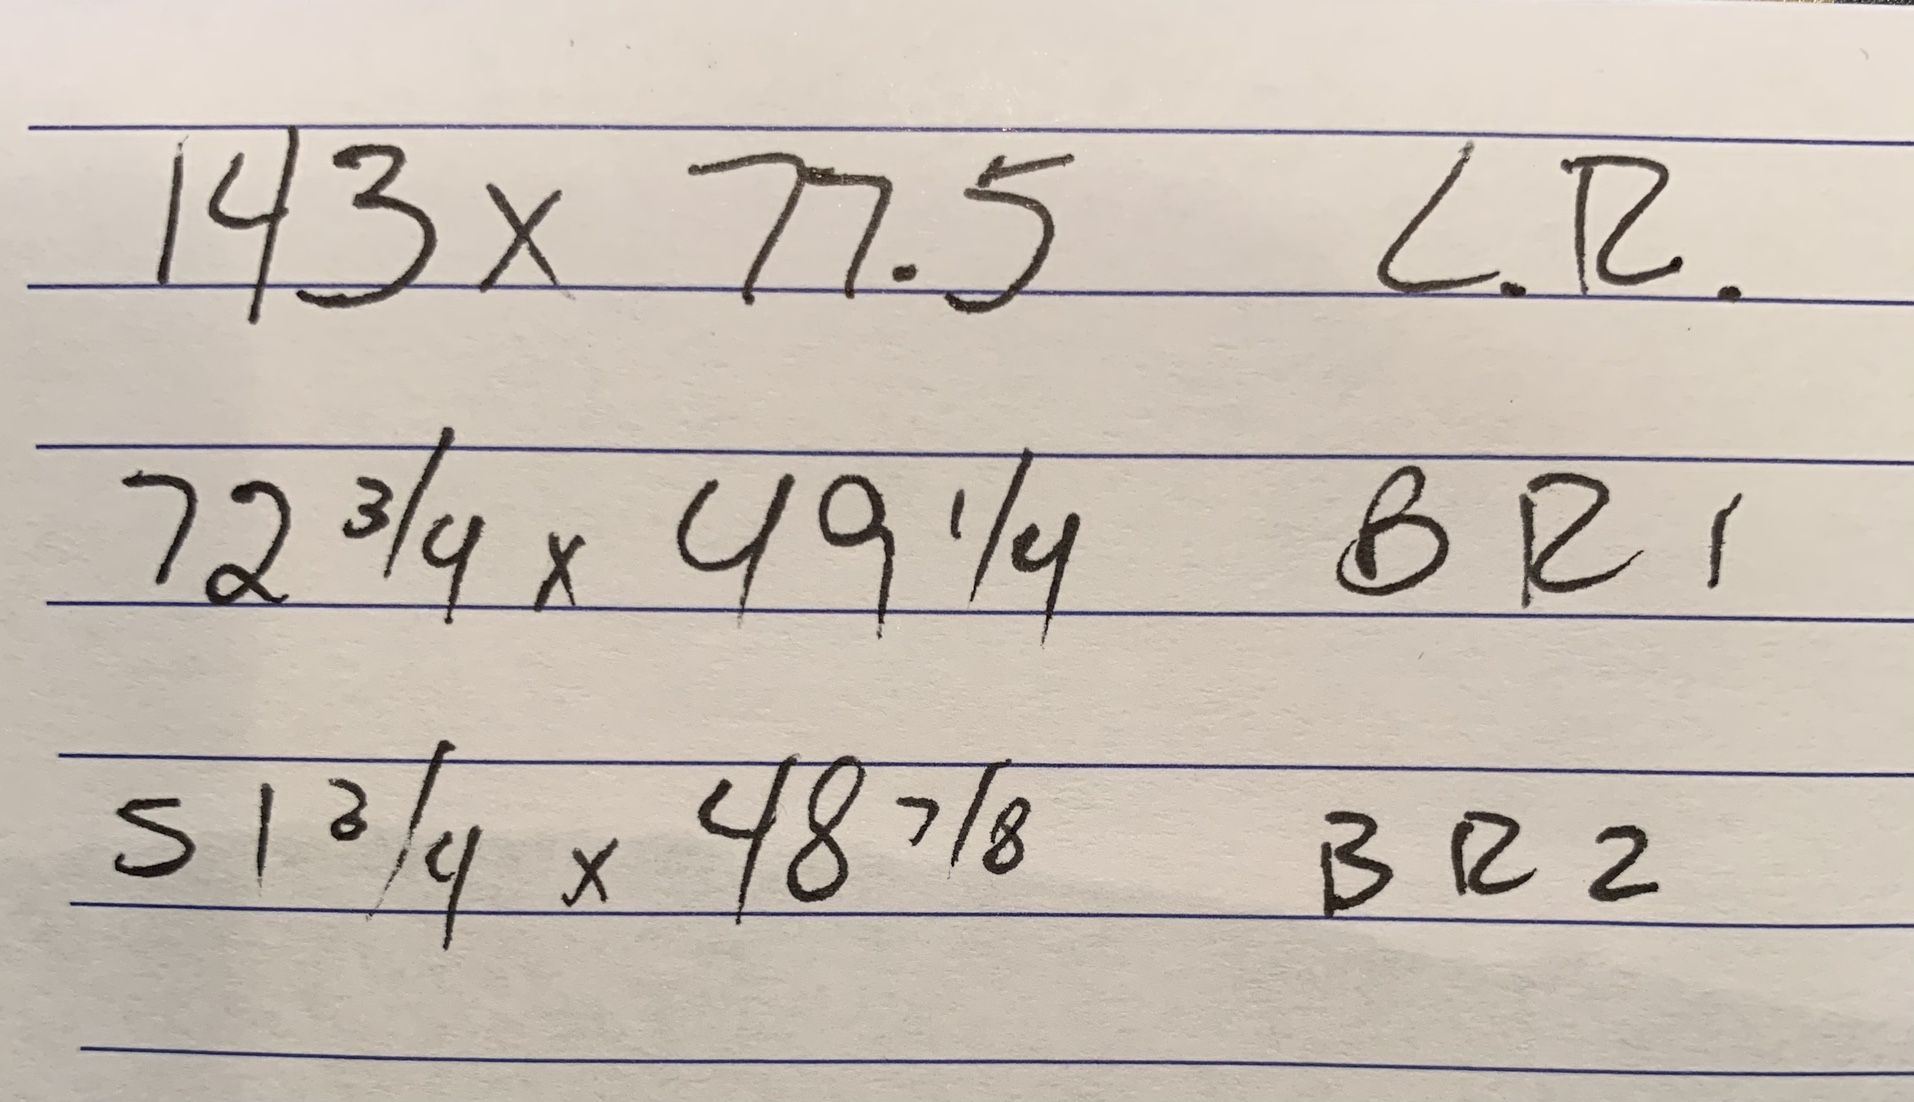 143 x 77.5 L.R.
72 3/4 x 49 1/4 BR 1
51 3/4 x 48 7/8 BR 2